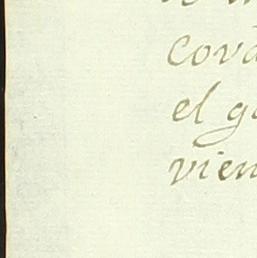 cova
el ga
vien